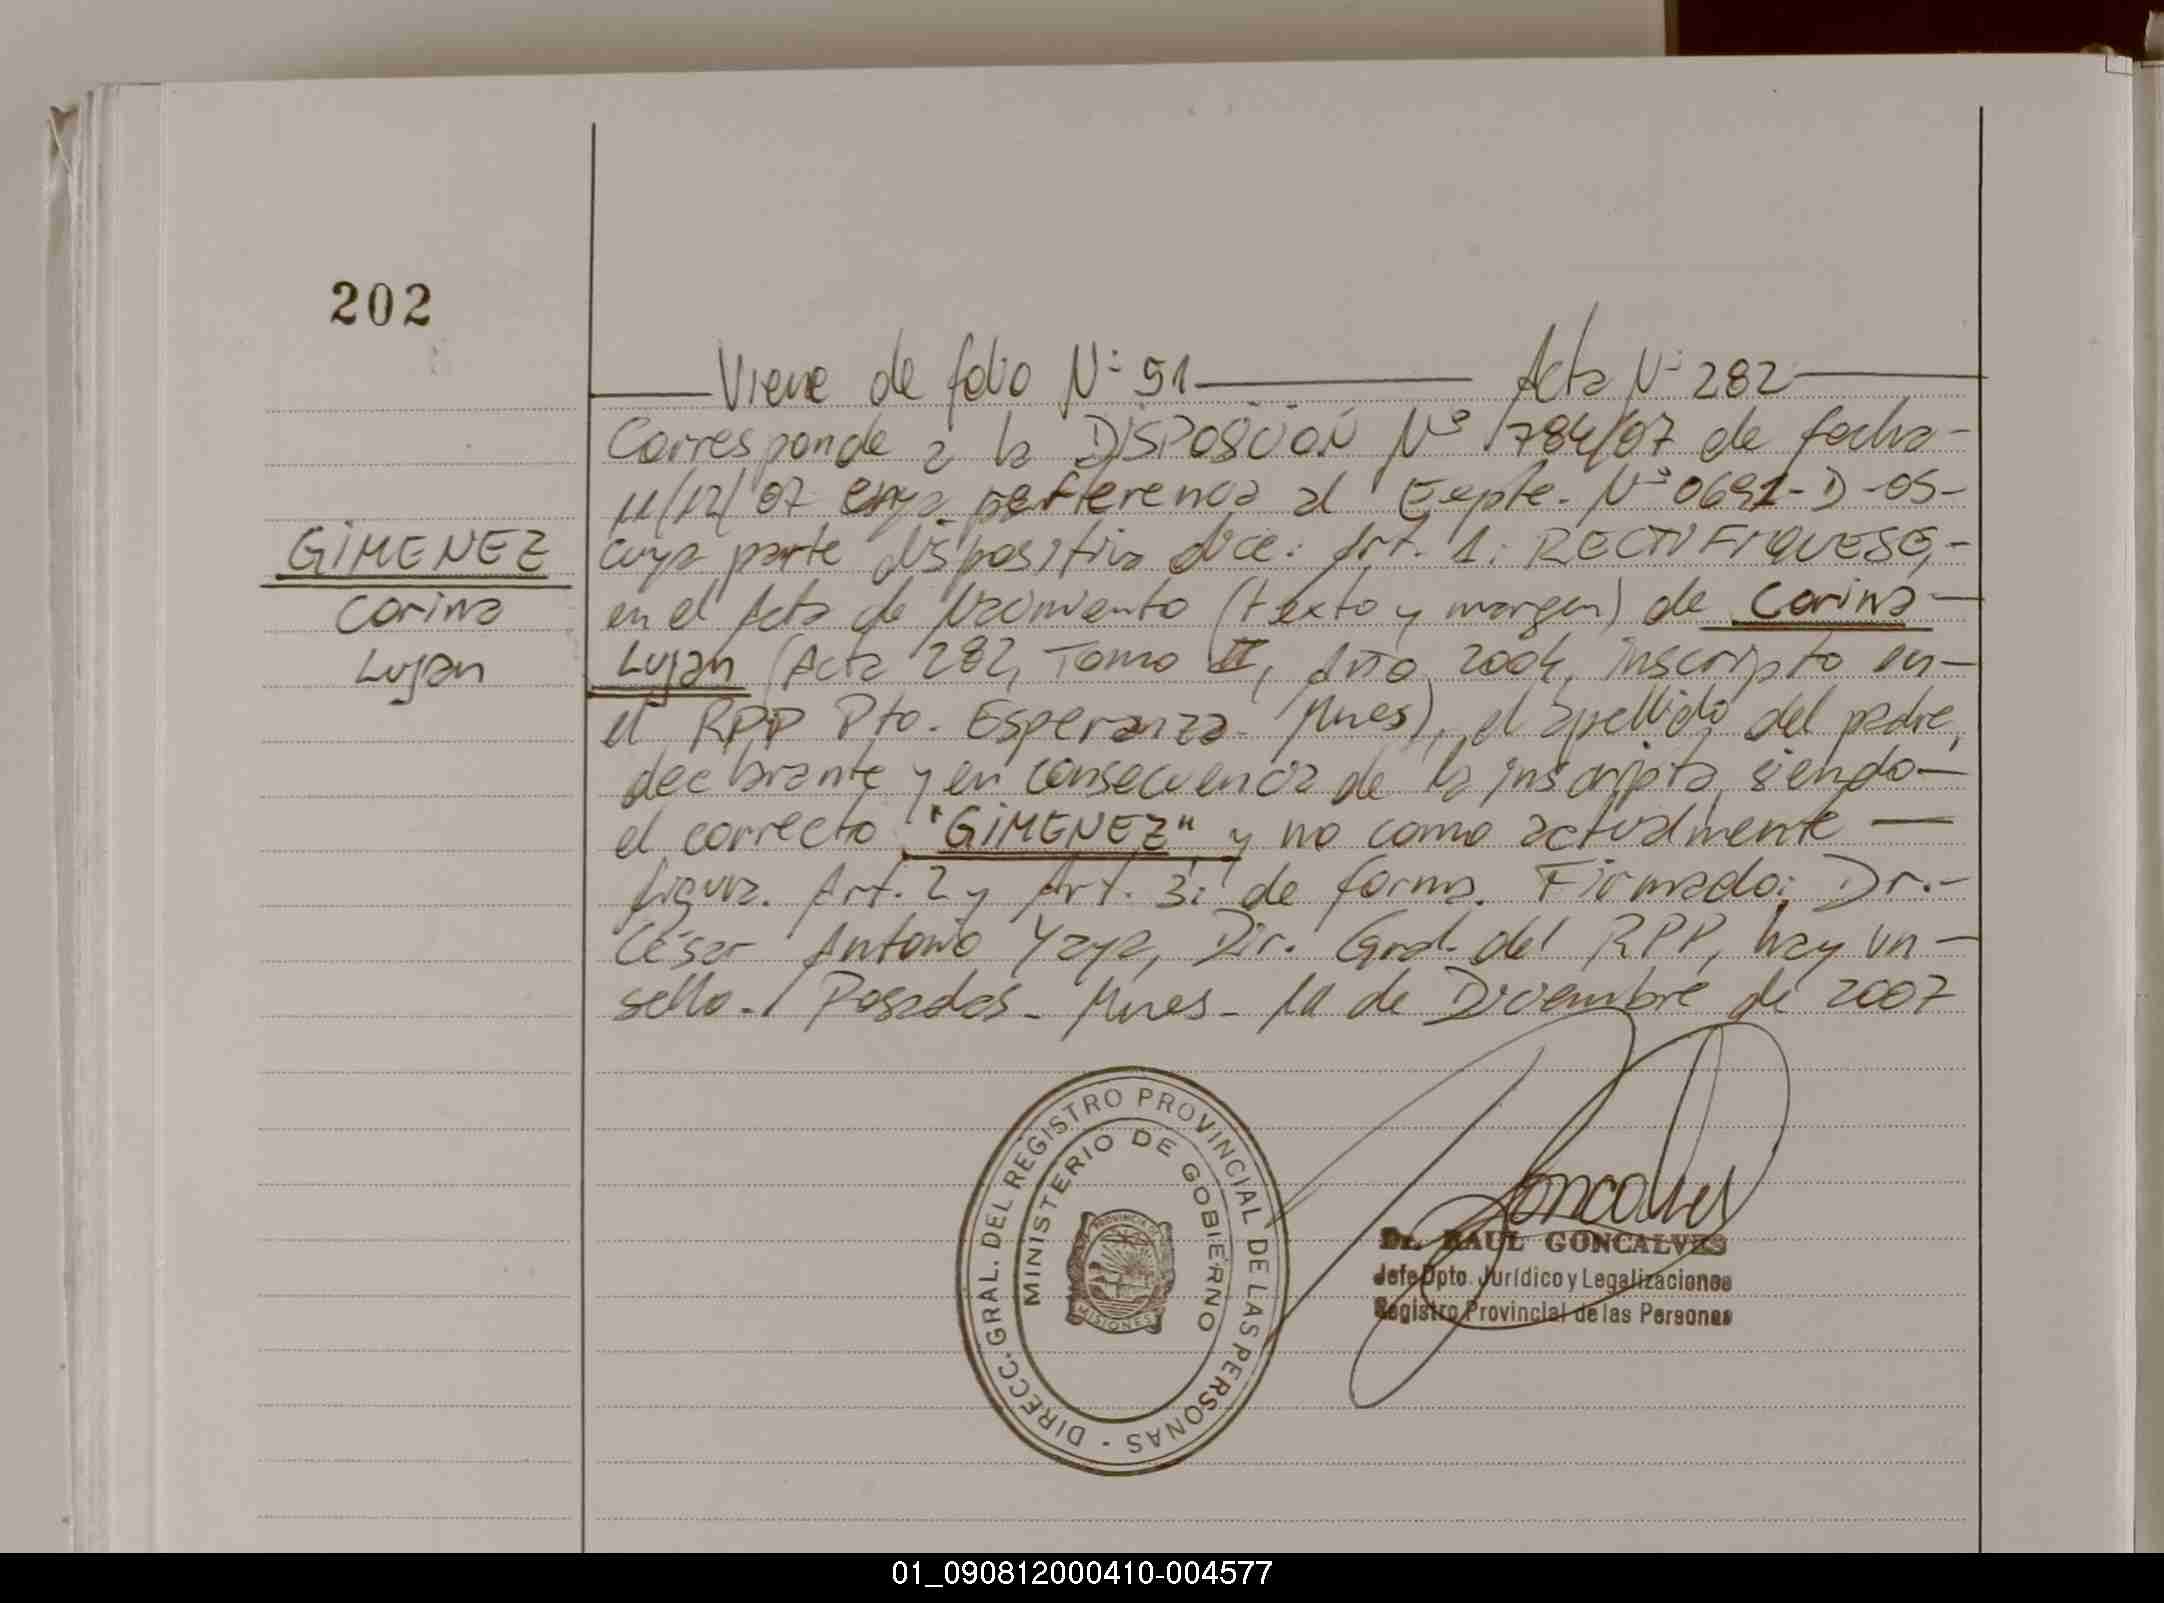 202
Viene de folio Nº 91 Acta Nº 282
Corresponde a la DISPOSICIÓN Nº 1784/07 de fecha-
11/12/07 en referencia al Expte. Nº 0691-D-05-
GIMENEZ
Corina
Lujan
cuya parte dispositiva dice: Art. 1: RECTIFIQUESE,-
en el Acta de Nacimiento (texto y margen) de Corina
Lujan (Acta 282, Tomo II, Año 2004, inscripto en
el RPP Pto. Esperanza- Mnes), el apellido del padre,
declarante y en consecuencia de la inscripta, siendo
el correcto "GIMENEZ" y no como actualmente
figura. Art. 2 y Art. 3: de forma. Firmado: Dr.-
César Antonio Yaya, Dir. Gral. del RPP, hay un
sello.- Posadas- Mnes- 11 de Diciembre de 2007
DIRECC. GRAL. DEL REGISTRO PROVINCIAL DE LAS PERSONAS -
MINISTERIO DE GOBIERNO
PROVINCIA DE
MISIONES
Goncalves
Dr. RAUL GONCALVES
Jefe Dpto. Jurídico y Legalizaciones
Registro Provincial de las Personas
01_090812000410-004577